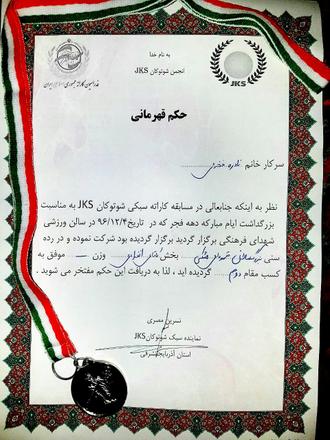 به نام خدا
انجمن شوتوکان JKS
JKS
فدراسیون کاراته جمهوری اسلامی ایران
حکم قهرمانی
سرکار خانم نادره
نظر به اینکه جنابعالی در مسابقه کاراته سبکی شوتوکان JKS به مناسبت
بزرگداشت ایام مبارکه دهه فجر که در تاریخ ۹۶/۱۲/۴ در سالن ورزشی
شهدای فرهنگی برگزار گردید برگزار گردیده بود شرکت نموده و در رده
سنی بزرگسالان بخش کاتای انفرادی وزن ـــ موفق به
کسب مقام دوم گردیده اید ، لذا به دریافت این حکم مفتخر می شوید .
نسرین مصری
نماینده سبک شوتوکان JKS
استان آذربایجانشرقی